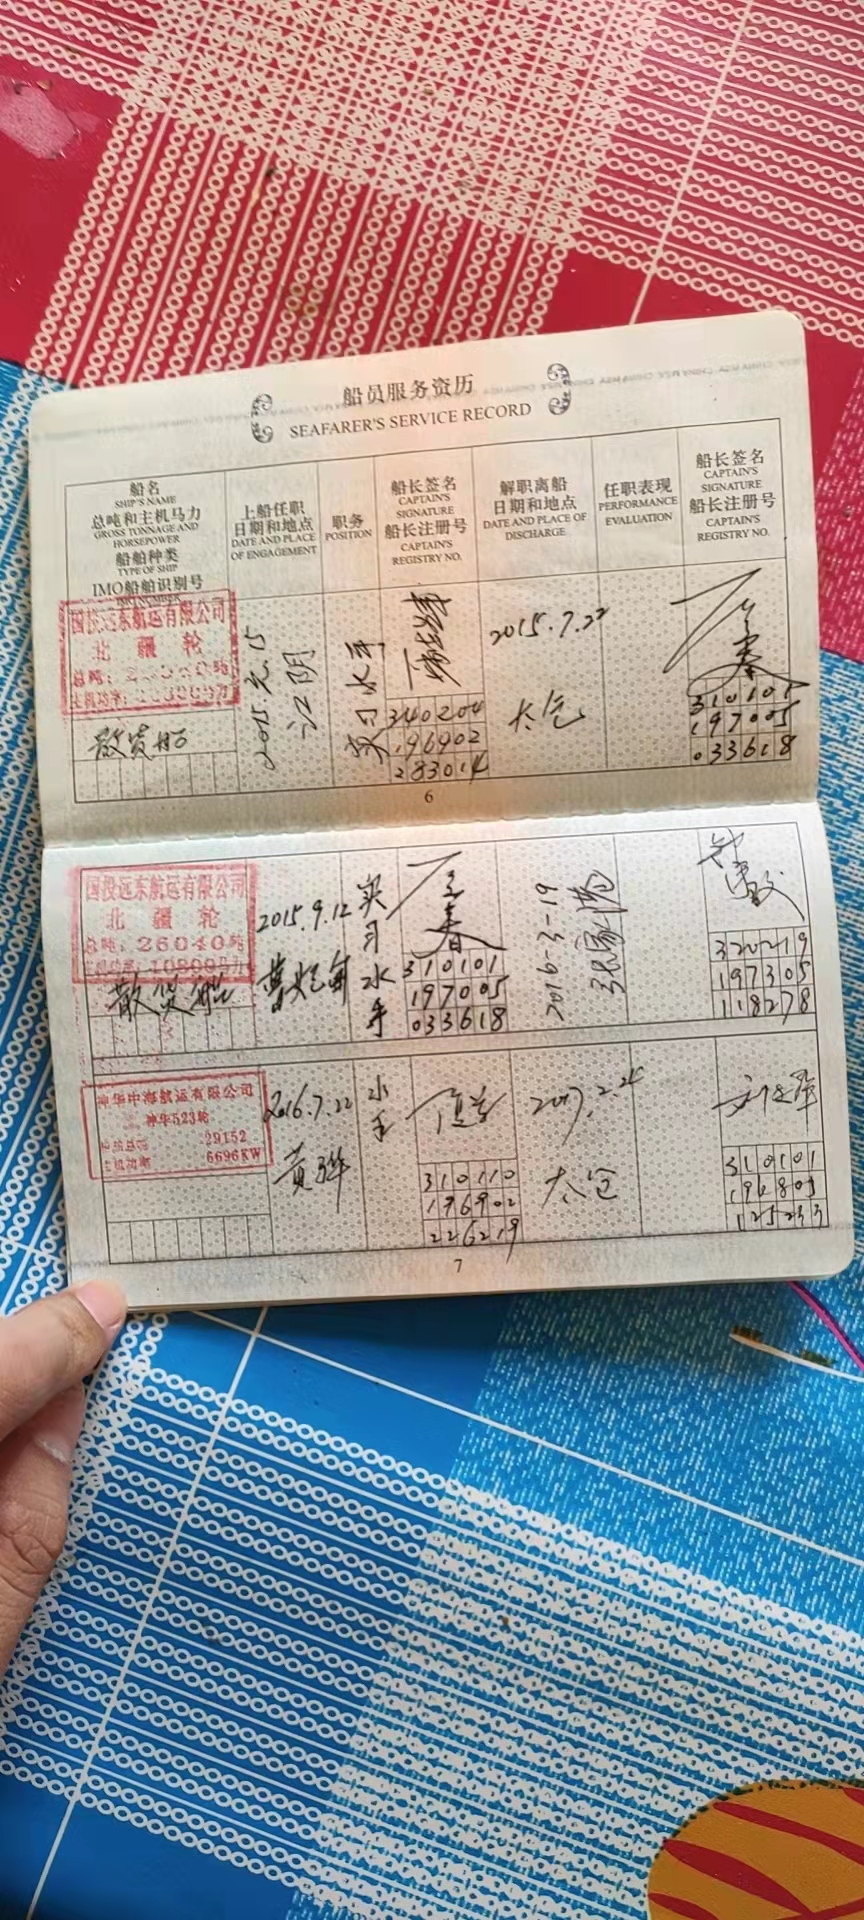 船员服务资历
SEAFARER'S SERVICE RECORD
船名
SHIP'S NAME
总吨和主机马力
GROSS TONNAGE AND
HORSEPOWER
船舶种类
TYPE OF SHIP
IMO船舶识别号
IMO NUMBER
上船任职
日期和地点
DATE AND PLACE
OF ENGAGEMENT
职务
POSITION
船长签名
CAPTAIN'S
SIGNATURE
船长注册号
CAPTAIN'S
REGISTRY NO.
解职离船
日期和地点
DATE AND PLACE OF
DISCHARGE
任职表现
PERFORMANCE
EVALUATION
船长签名
CAPTAIN'S
SIGNATURE
船长注册号
CAPTAIN'S
REGISTRY NO.
国投远东航运有限公司
北疆轮
总吨:
主机功率:
散货船
2015.元.15
江阴
实习水手
340204
196902
283014
2015.7.22
太仓
310101
197005
033618
6
国投远东航运有限公司
北疆轮
总吨: 26040吨
主机功率: 10800马力
散货船
2015.9.12
曹妃甸
实习水手
310101
197005
033618
2016-3-19
张家港
320219
197305
118278
神华中海航运有限公司
神华523轮
29152
6696KW
2016.7.22
黄骅
水手
310110
196902
226219
2017.2.25
太仓
310101
196805
125233
7